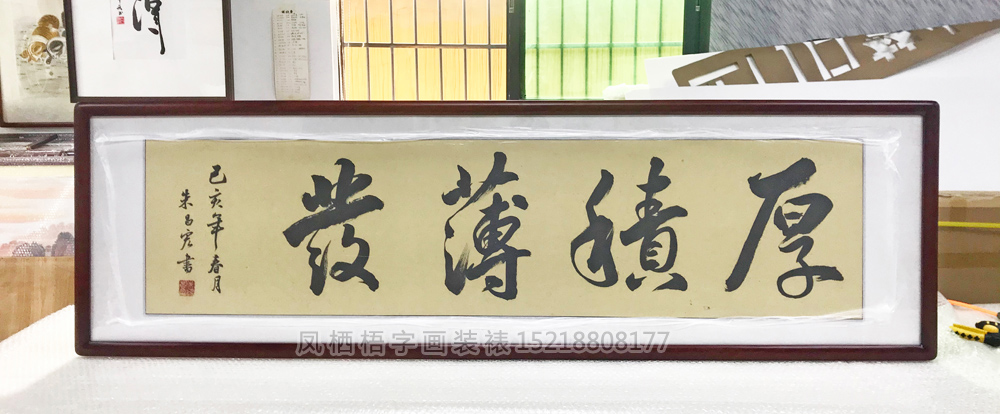 厚積薄發
己亥年春月
朱昌宏書
凤栖梧字画装裱15218808177